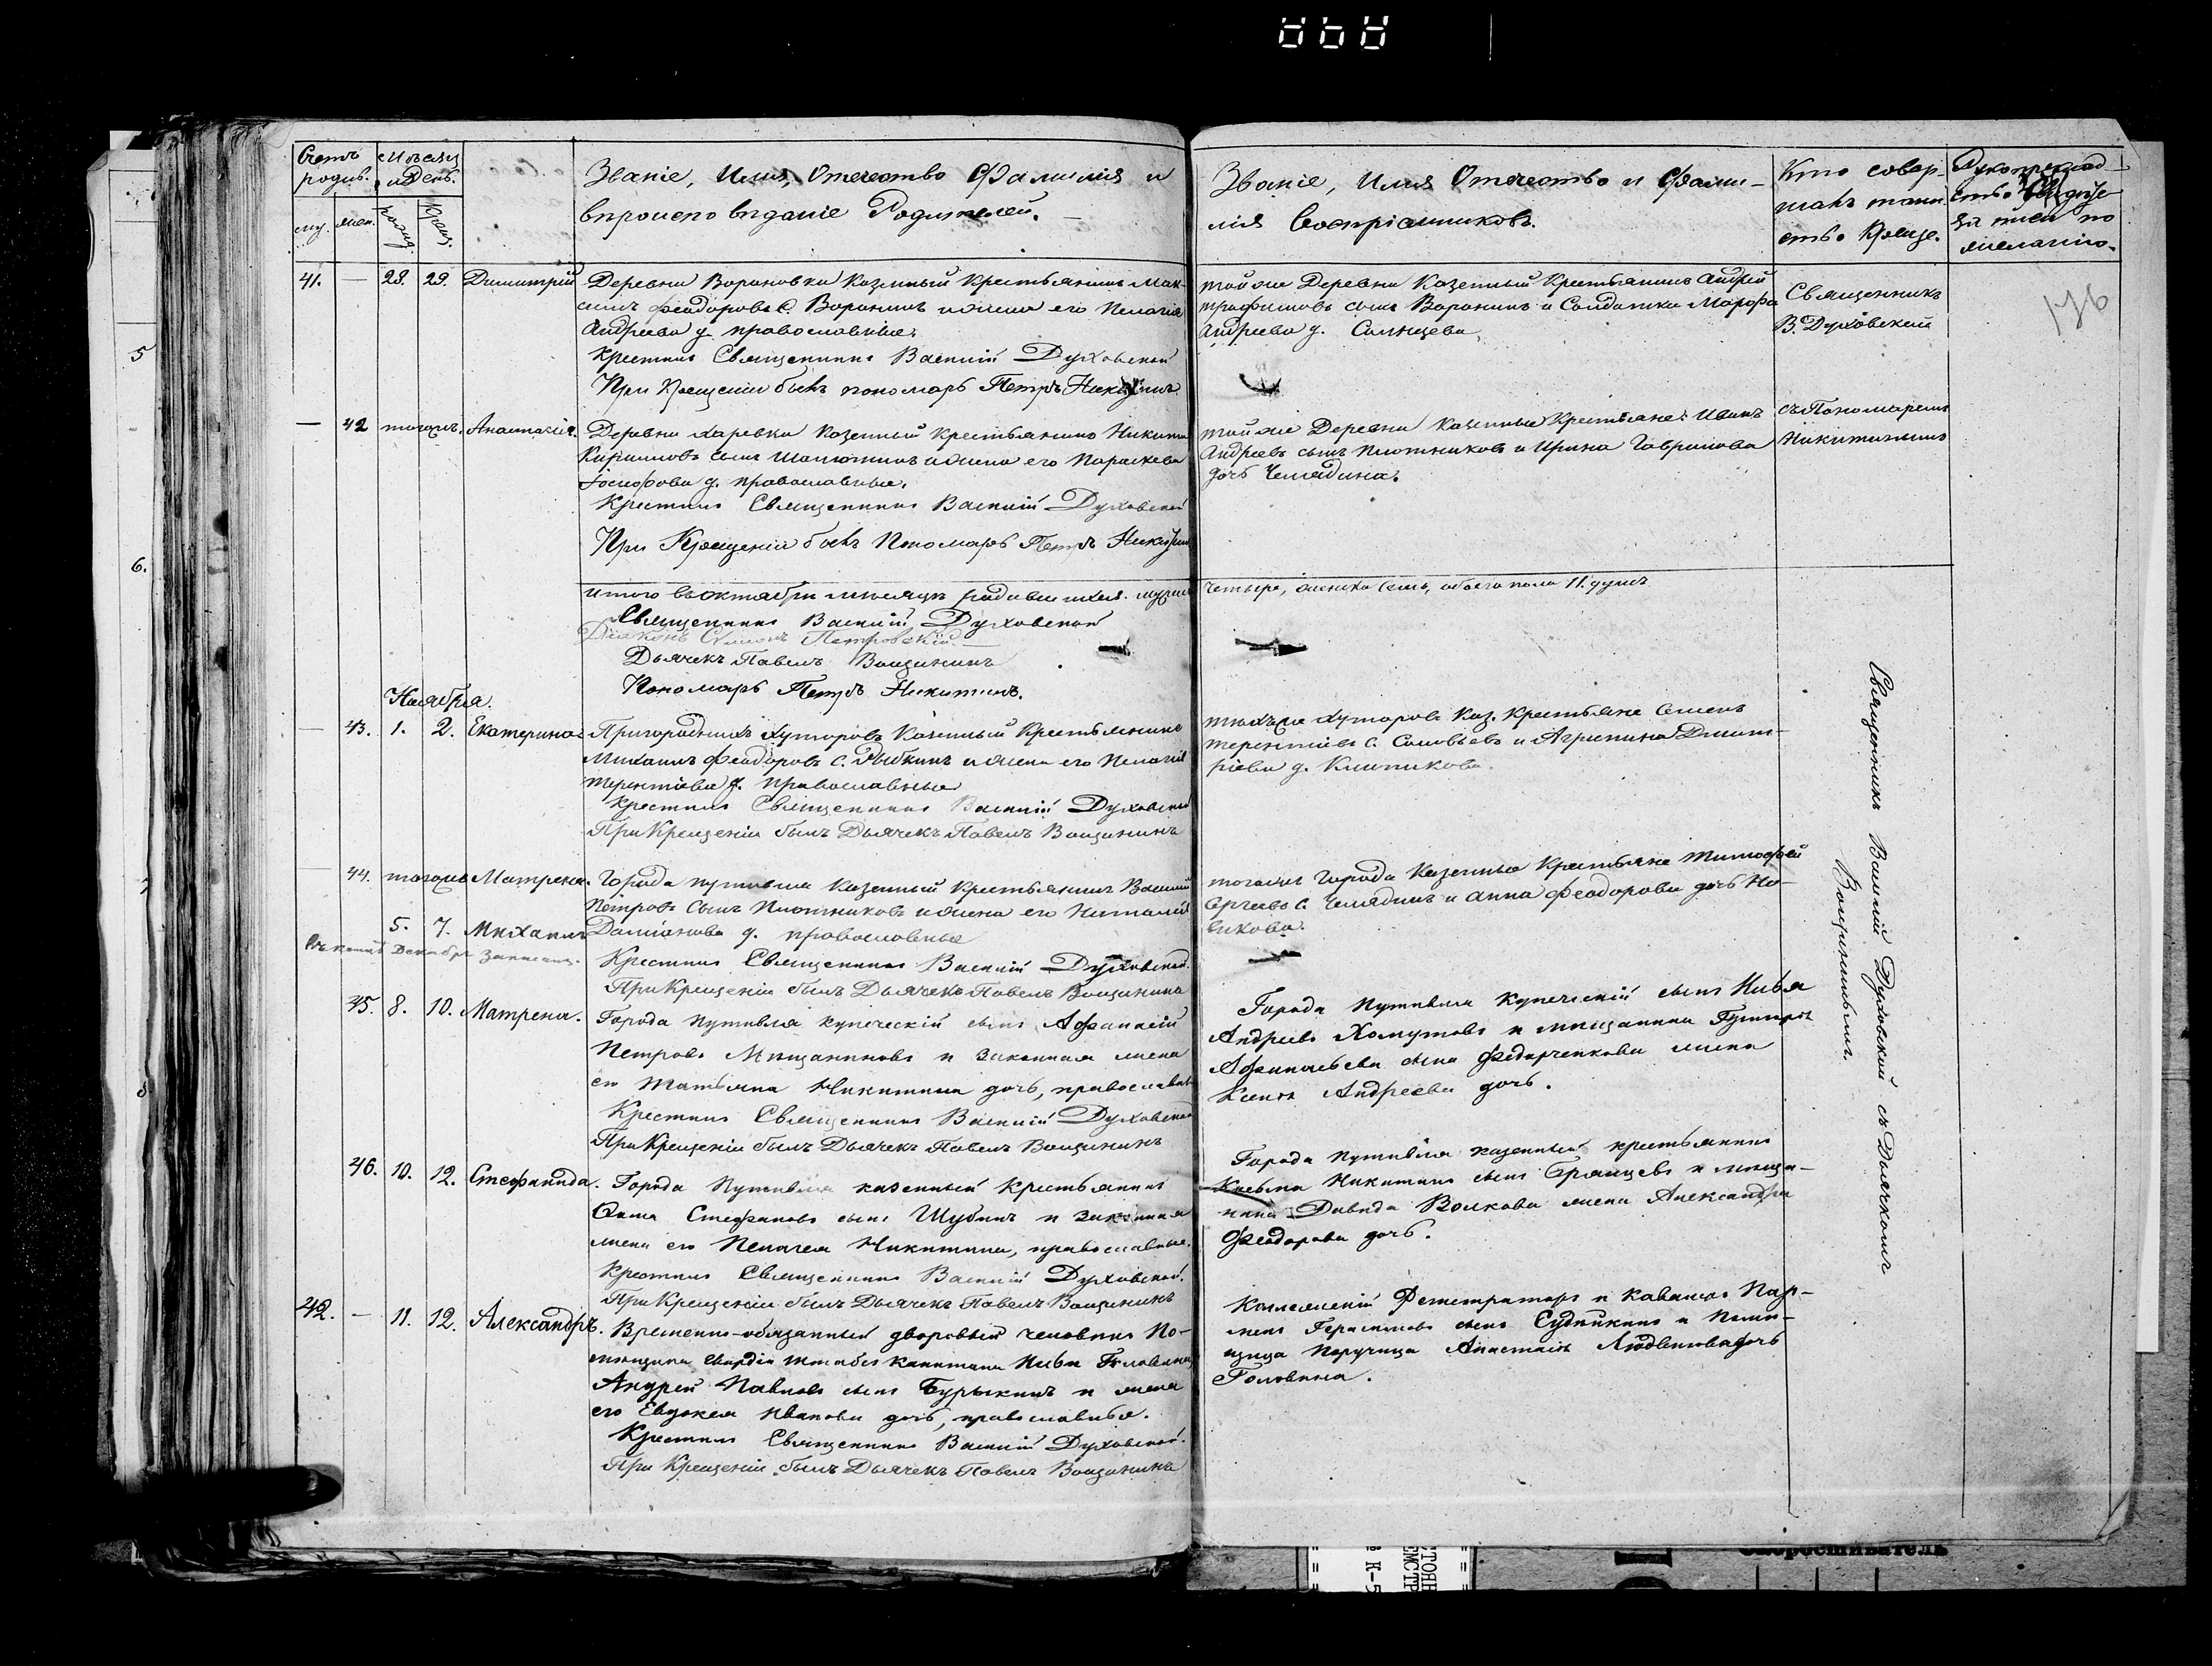 Счетъ родив.
Мѣсяц и День.
му. жен. рожд. Крещ.
Званіе, Имя, Отечество Фамилія и
вѣроисповѣданіе Родителей.
Званіе, Имя Отечество и Фами-
лія Воспріемниковъ.
Кто совер-
шалъ таин
ство Креще.
Рукоприклад
ство Свидѣте
записи по
желанію.
176
41. — 28. 29. Димитрій
Деревни Вороновки Казенный Крестьянинъ Мак-
симъ Феодоровъ С. Воронинъ и жена его Пелагія
Андреева д. православные.
Крестилъ Священникъ Василій Духовской
При Крещеніи былъ пономарь Петръ Никитинъ
той же Деревни Казенный Крестьянинъ Андрей
Трофимовъ сынъ Воронинъ и Солдатка Марфа
Андреева д. Солнцева.
Священникъ
В. Духовской
— 42 тогожъ. Анастасія.
Деревни Харевки Казенный Крестьянинъ Никита
Кириловъ сынъ и жена его Параскева
Іосифова д. православные.
Крестилъ Священникъ Василій Духовской
При Крещеніи былъ Пономарь Петръ Никитин
той же Деревни Казенные Крестьяне: Иванъ
Андреевъ сынъ Плотниковъ и Ирина Гаврилова
дочь Челядина.
съ Пономаремъ
Никитинымъ
Итого въ октябрѣ мѣсяцѣ родившихся. мужеск
четыре, женска семь, обоего пола 11. душъ
Священникъ Василій Духовской
Діаконъ Симонъ Петровскій
Дьячекъ Павелъ Вощининъ
Пономарь Петръ Никитинъ.
Ноября.
— 43. 1. 2. Екатерина
Пригородныхъ Хуторовъ Казенный Крестьянинъ
Михаилъ Феодоровъ С. Рыбкинъ и жена его Пелагія
Терентіева д. православные
Крестилъ Священникъ Василій Духовской
При Крещеніи былъ Дьячекъ Павелъ Вощининъ
тѣхъ же Хуторовъ Каз. Крестьяне Семенъ
Терентіевъ С. Соловьевъ и Агрипина Димит-
ріева д. Клитикова.
— 44. тогожъ Матрена.
Города Путивля Казенный Крестьянинъ Василій
Петровъ Сынъ Плотниковъ и жена его Наталія
Даміанова д. православные
Крестилъ Священникъ Василій Духовской.
При Крещеніи былъ Дьячекъ Павелъ Вощининъ
тогожъ Города Казенные Крестьяне Тимофей
Сергеевъ С. Челядинъ и Анна Феодорова дочь Но-
викова.
5. 7. Михаилъ
въ концѣ Декабря записанъ.
45. 8. 10. Матрена.
Города Путивля купеческій сынъ Афанасій
Петровъ Мищаниновъ и законная жена
его Татьяна Никитина дочь, православные
Крестилъ Священникъ Василій Духовской
При Крещеніи былъ Дьячекъ Павелъ Вощининъ
Города Путивля купеческій сынъ Илья
Андреевъ Хомутовъ и мѣщанина Григорія
Афанасьева сына Федорченкова жена
Андреева дочь.
46. 10. 12. Стефанида.
Города Путивля казенный Крестьянинъ
Фома Стефановъ сынъ Шубинъ и законная
жена его Пелагея Никитина, православные.
Крестилъ Священникъ Василій Духовской.
При Крещеніи былъ Дьячекъ Павелъ Вощининъ
Города Путивля казенный крестьянинъ
Козьма Никитинъ сынъ Брянцевъ и мѣща-
нина Давида Волкова жена Александра
Феодорова дочь.
42. — 11. 12. Александръ.
Временно-обязанный дворовый человѣкъ По-
мѣщика гвардіи штабсъ капитана Ильи Головина
Андрей Павловъ сынъ Бурыкинъ и жена
его Евдокея Иванова дочь, православные.
Крестилъ Священникъ Василій Духовской.
При Крещеніи былъ Дьячекъ Павелъ Вощининъ
Коллежскій Регистраторъ и Кавалеръ Пар-
менъ Герасимовъ сынъ Судейкинъ и Помѣ-
щица Поручица Анастасія Людвигова дочь
Головина.
Священникъ Василій Духовской съ Дьячкомъ
Вощининымъ.